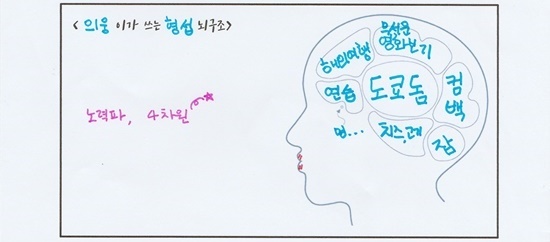 < 의웅 이가 쓰는 형섭 뇌구조>
노력파, 4차원
무서운
영화보기
해외여행
연습
도쿄돔
컴
백
멍...
치즈,고기
잠